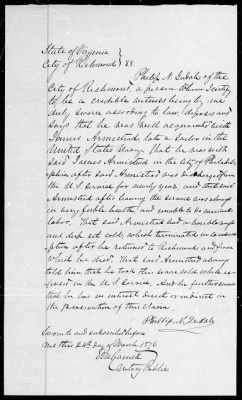 State of Virginia
City of Richmond } SS.
Philip N. of the
City of Richmond, a person whom I certify
to be a credible witness being by me
duly sworn according to law, deposes and
says that he was well acquainted with
James Armistead late a Sailor in the
United States Navy. That he was with
said James Armistead in the city of Philadel-
phia after said Armistead was discharged from
the U.S. Service for nearly year, and that said
Armistead after leaving the service was always
in very feeble health, and unable to do manual
labor. That said Armistead had a horrible cough
and deep set cold, which terminated in consum-
ption after he returned to Richmond and from
which he died. That said Armistead always
told him that he took the severe cold while ex-
posed in the U.S. Service. And he furthermore
that he has no interest direct or indirect in
the prosecution of this claim.
Phillip N.
Sworn to and subscribed before
me this 24th day of March 1876
Notary Public